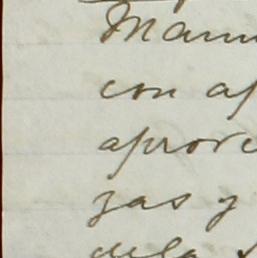 Manu
con ap
aprove
zas y
dela